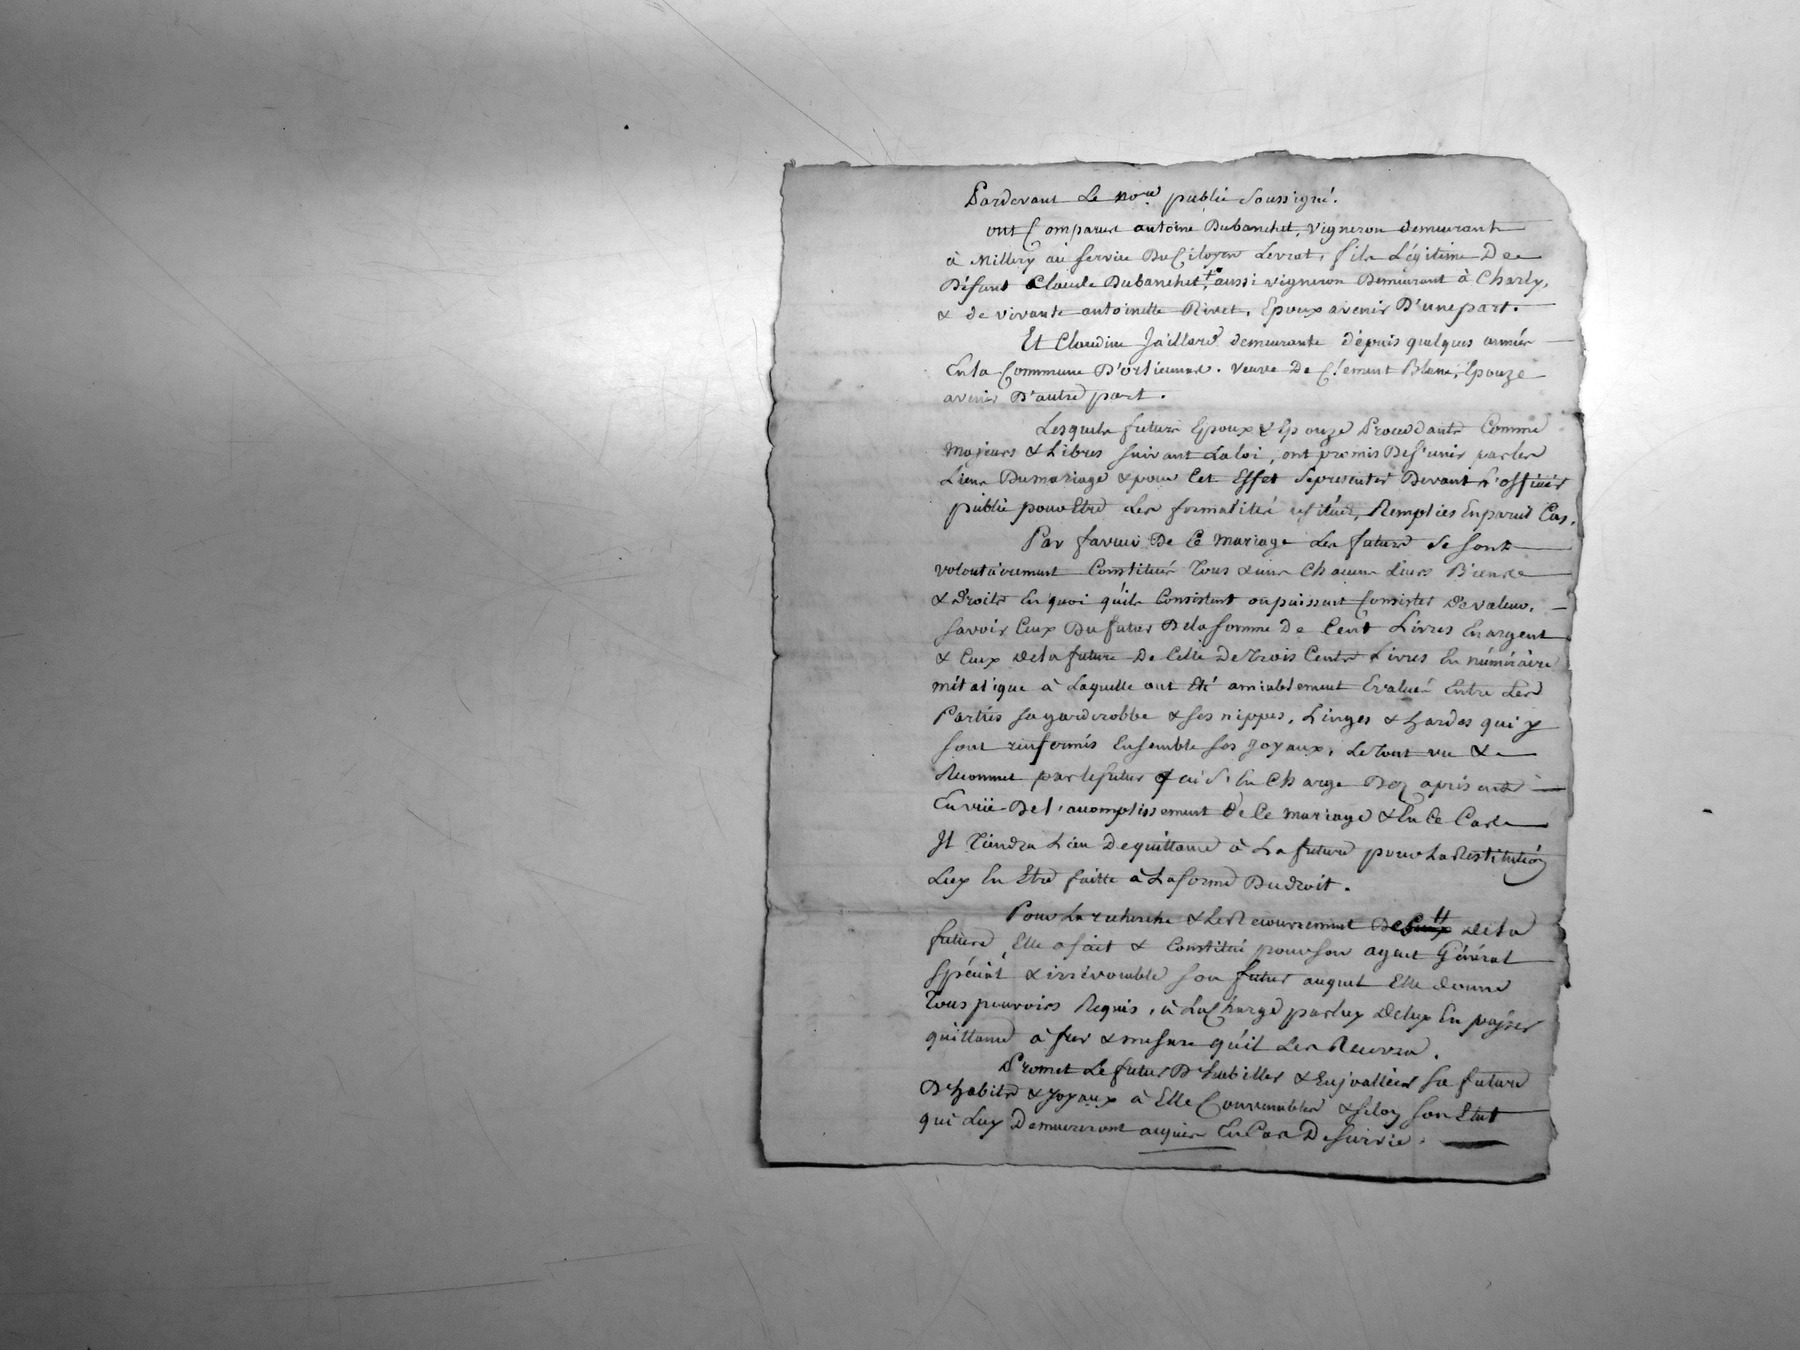 Pardevant Le no.re public Soussigné.
ont Comparus antoine Dubanchet, vigneron demeurant
à Millery au service Du Citoyen Levrat, fils Légitime De
Défunt Claude Dubanchet + aussi vigneron Demeurant à Charly,
& de vivante antoinette Rivet, Epoux avenir D'une part.
Et Claudine Jaillard demeurante dépuis quelques année
En la Commune D'orliennas. veuve De Clément Blanc, Epouze
avenir D'autre part.
Lesquels futurs Epoux & Epouze Procedants Comme
majeurs & Libres suivant La loi, ont promis De s'unir par les
Liens Du mariage & pour Cet Effet Se présenter Devant L'officier
public pour Etre Les formalités usitées, Remplies En pareil Cas.
Par faveur De Ce mariage Les futurs se sont
volontairement Constitués Tous & uns Chacuns Leurs Biens
& droits En quoi qu'ils Consistent ou puissent Consister De valeur,
savoir Ceux Du futur De la somme De Cent Livres En argent
& Ceux De la future De Celle De Trois Cents Livres En numéraire
métalique à Laquelle ont Eté amiablement Evalués Entre Les
Parties sa garderobbe & ses nippes, Linges & hardes qui y
sont renfermés Ensemble ses Joyaux, Le Tout vu &
Reconnut par le futur qui s'En Charge Dez aprésent
En vüe De l'accomplissement De Ce mariage & En Ce Cas
Il Tiendra Lieu De quittance à La future pour La Restitution
Luy En Etre faitte à La forme Du droit.
Pour La recherche & Le Recouvrement De De la
future, Elle a fait & Constitué pour son agent Général
Spécial & irrévocable son futur auquel Elle donne
Tous pouvoirs Requis, à La Charge par luy De luy En passer
quittance à fur & mesure qu'il Les Recevra.
Promet Le futur D'habiller & Enjoailler sa future
D'habits & Joyaux à Elle Convenables & selon son Etat
qui Luy Demeureront acquis En Cas De survie.